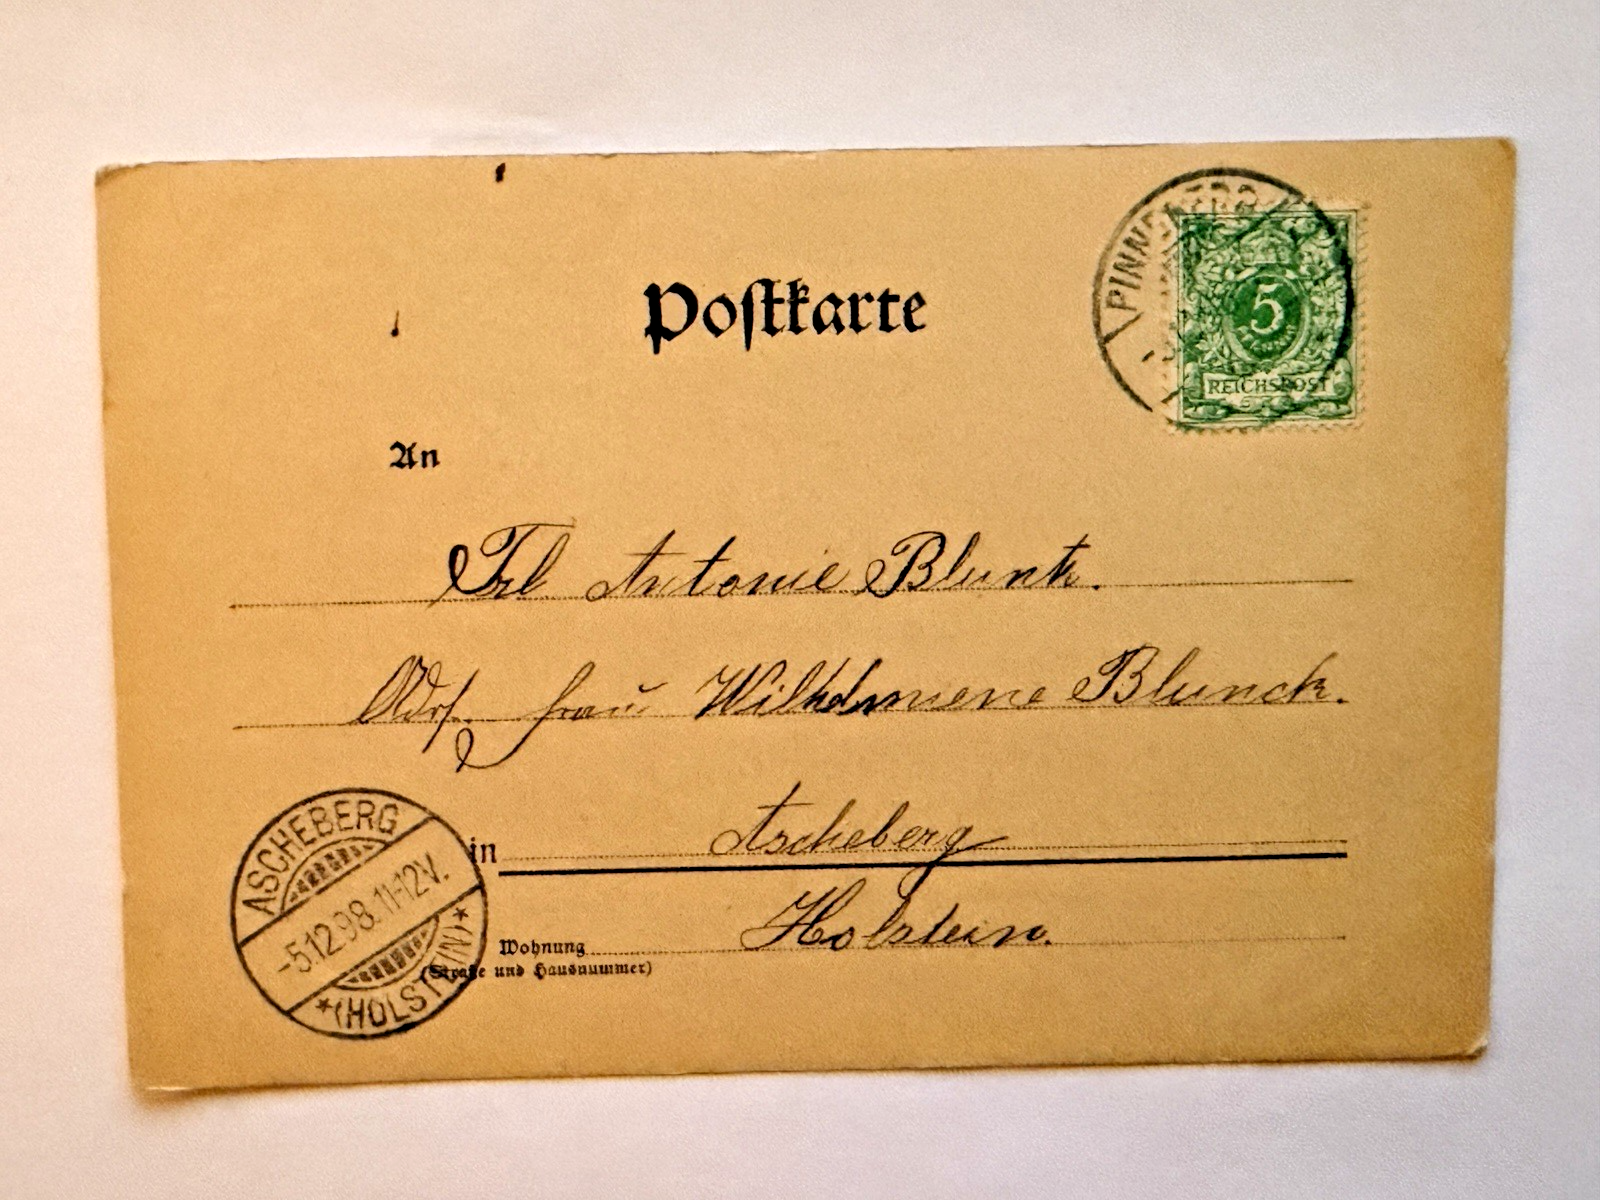 Postkarte
PINNEBERG
5
PFENNIG
REICHSPOST
An
Frl Antonie Blunk.
Adr. Frau Wilhelmiene Blunck.
in Ascheberg
Holstein.
Wohnung
(Straße und Hausnummer)
ASCHEBERG
-5.12.98.11-12V.
*(HOLSTEIN)*